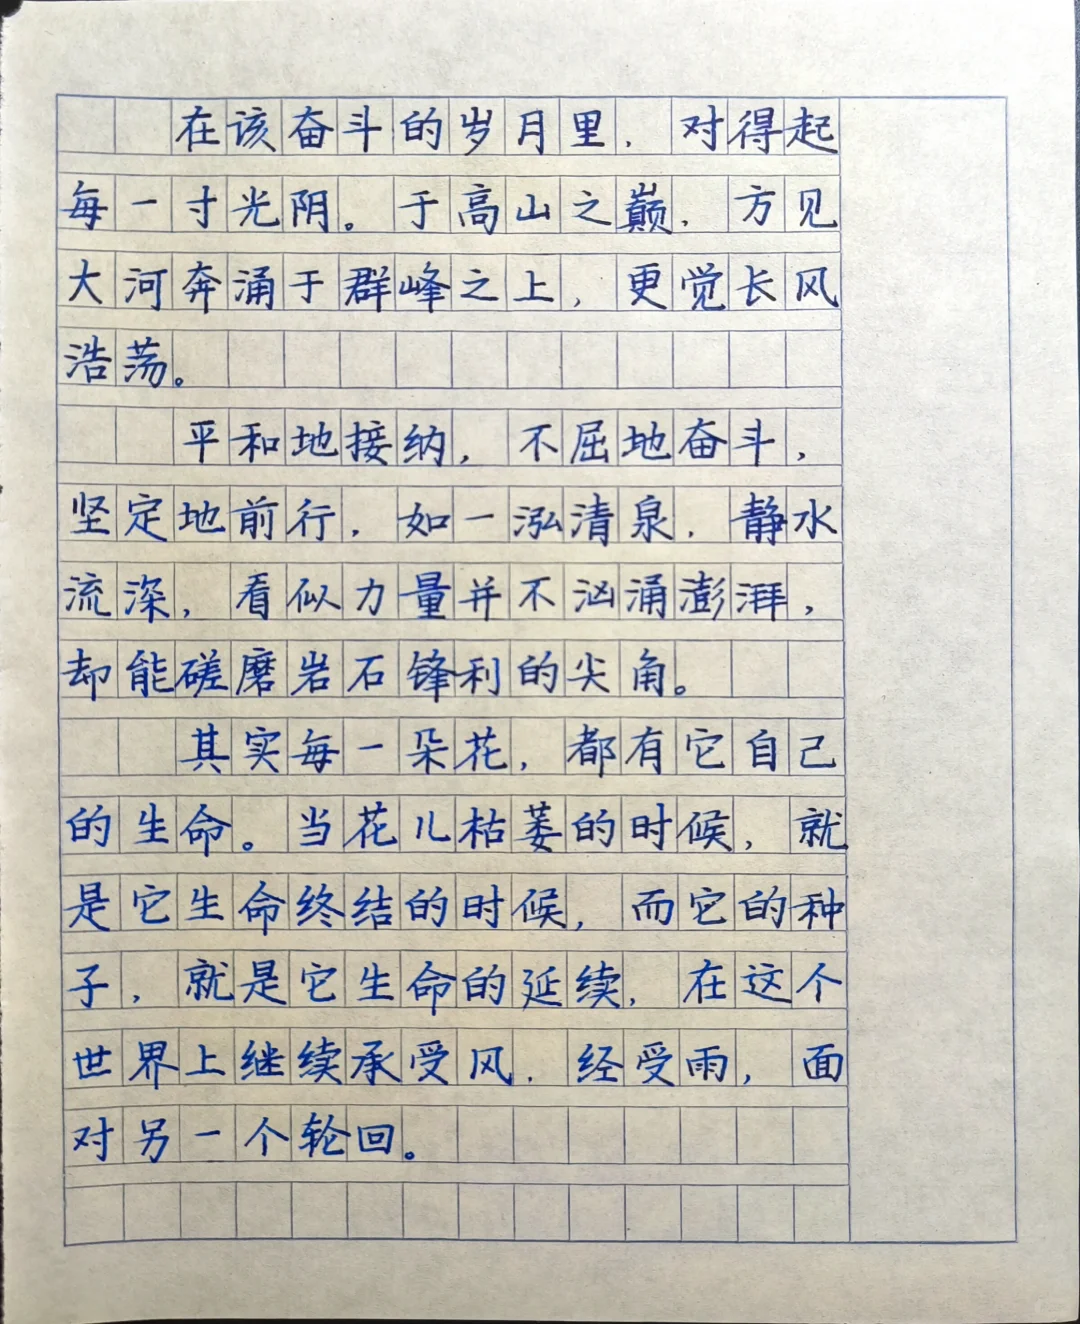 在该奋斗的岁月里，对得起
每一寸光阴。于高山之巅，方见
大河奔涌于群峰之上，更觉长风
浩荡。
平和地接纳，不屈地奋斗，
坚定地前行，如一泓清泉，静水
流深，看似力量并不汹涌澎湃，
却能磋磨岩石锋利的尖角。
其实每一朵花，都有它自己
的生命。当花儿枯萎的时候，就
是它生命终结的时候，而它的种
子，就是它生命的延续，在这个
世界上继续承受风，经受雨，面
对另一个轮回。